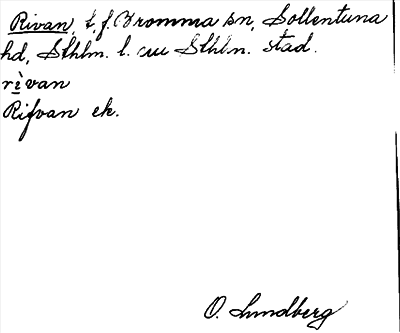 Rivan, t. f. Bromma sn, Sollentuna
hd, Sthlm. l. nu Sthlm. stad.
rìvan
Rifvan ek.
O. Lundberg